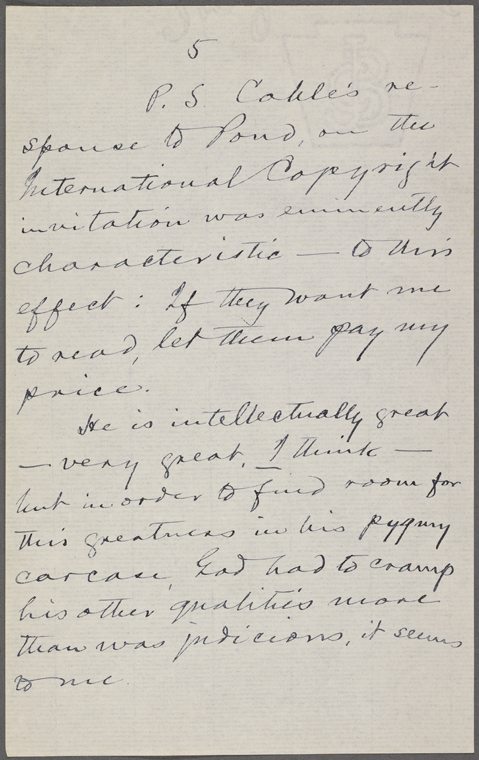 5
P. S. Cable's re-
sponse to Pond, on the
International Copyright
invitation was eminently
characteristic — to this
effect: If they want me
to read, let them pay my
price.
He is intellectually great
— very great, I think —
but in order to find room for
this greatness in his pygmy
carcase, God had to cramp
his other qualities more
than was judicious, it seems
to me.